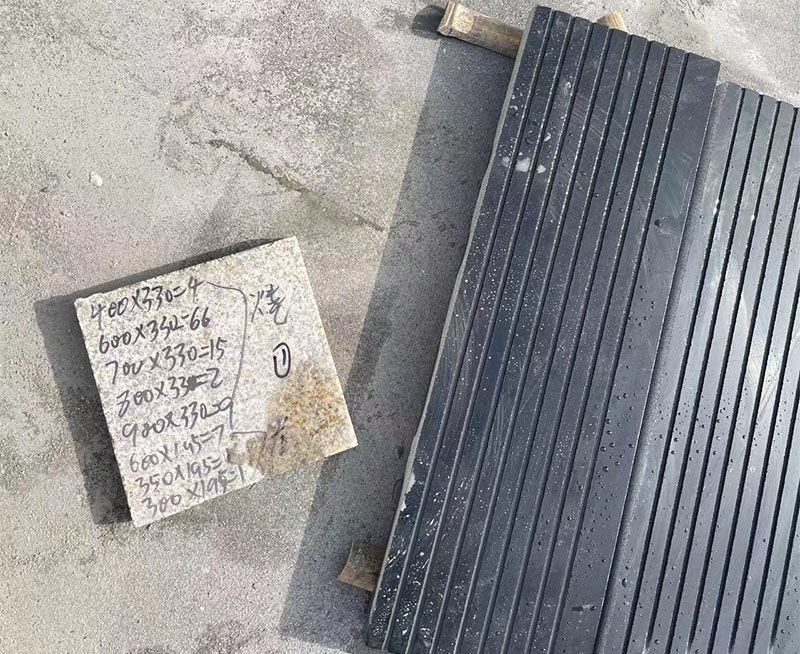 400X330=4
600X330=66
700X330=15
300X330=2
900X330=9
600X195=7
350X195=
300X195=1
烧
①